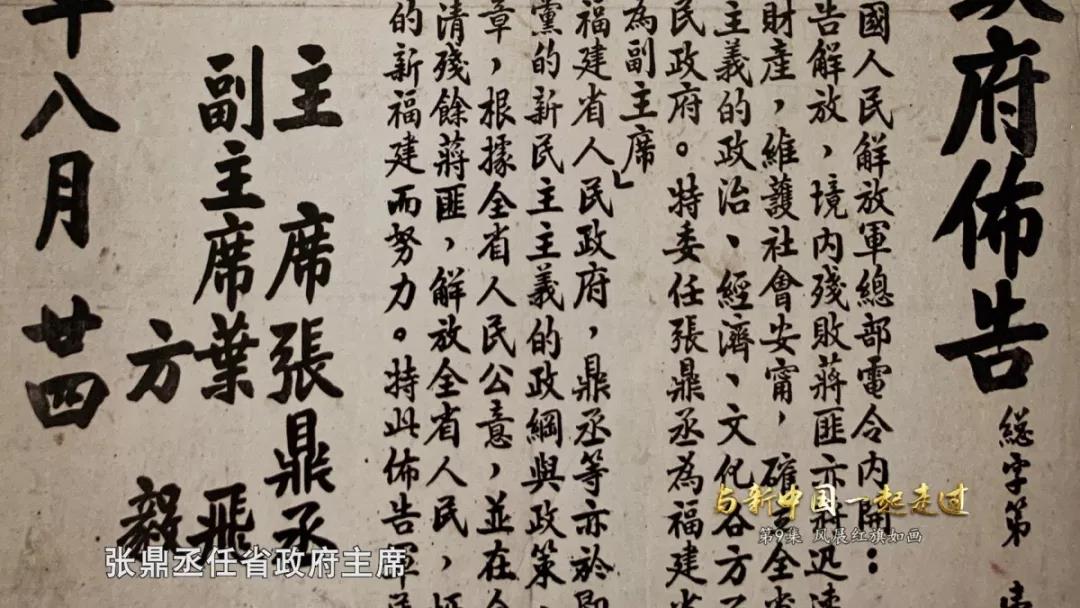 府佈告
總字第
國人民解放軍總部電令內開：
告解放，境內殘敗蔣匪亦將迅速
財產，維護社會安甯，確立全省
主義的政治、經濟、文化各方
民政府。特委任張鼎丞為福建省
為副主席」
福建省人民政府，鼎丞等亦於即
黨的新民主主義的政綱與政策、
章，根據全省人民公意，並在
清殘餘蔣匪，解放全省人民，
的新福建而努力。特此佈告軍
主席張鼎丞
副主席葉飛
方毅
八月廿四
与新中国一起走过
第9集 风展红旗如画
张鼎丞任省政府主席